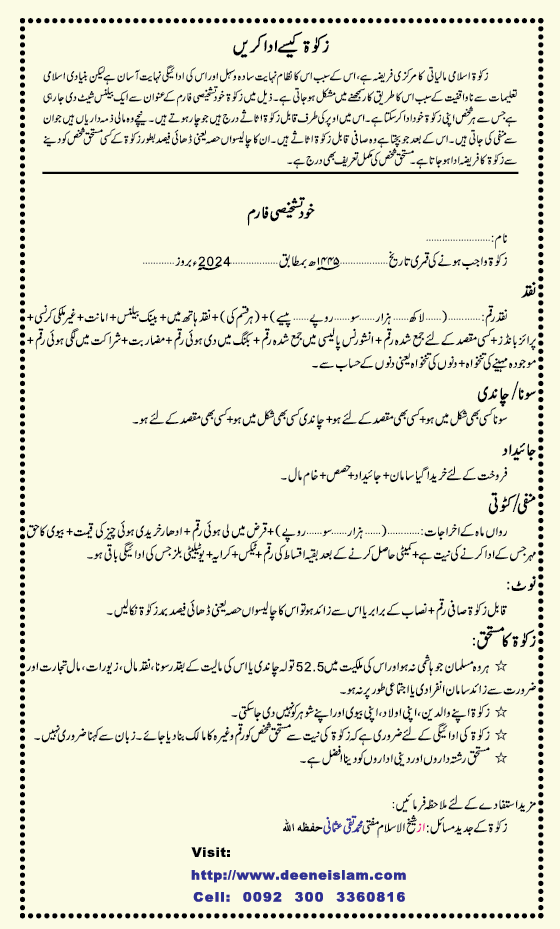 زکوٰۃ کیسے ادا کریں
زکوٰۃ اسلامی مالیاتی کا مرکزی فریضہ ہے، اس کے سبب اس کا نظام نہایت سادہ و سہل اور اس کی ادائیگی نہایت آسان ہے لیکن بنیادی اسلامی
تعلیمات سے ناواقفیت کے سبب اس کا طریق کار سمجھنے میں مشکل ہو جاتی ہے۔ ذیل میں زکوٰۃ خود تشخیصی فارم کے عنوان سے ایک بیلنس شیٹ دی جا رہی
ہے جس سے ہر شخص اپنی زکوٰۃ خود ادا کر سکتا ہے۔ اس میں اوپر کی طرف قابل زکوٰۃ اثاثے درج ہیں جو چار ہوتے ہیں۔ نیچے وہ مالی ذمہ داریاں ہیں جو ان
سے منفی کی جاتی ہیں۔ اس کے بعد جو بچتا ہے وہ صافی قابل زکوٰۃ اثاثے ہیں۔ ان کا چالیسواں حصہ یعنی ڈھائی فیصد بطور زکوٰۃ کے کسی مستحق شخص کو دینے
سے زکوٰۃ کا فریضہ ادا ہو جاتا ہے۔ مستحق شخص کی مکمل تعریف بھی درج ہے۔
خود تشخیصی فارم
نام: ........................
زکوٰۃ واجب ہونے کی قمری تاریخ ..................۱۴۴۵ھ بمطابق ..................2024ء بروز ............
نقد
نقد رقم: ............(...... لاکھ...... ہزار......سو......روپے......پیسے) + (ہر قسم کی) + نقد ہاتھ میں + بینک بیلنس + امانت + غیر ملکی کرنسی +
پرائز بانڈز + کسی مقصد کے لئے جمع شدہ رقم + انشورنس پالیسی میں جمع شدہ رقم + بکنگ میں دی ہوئی رقم + مضاربت + شراکت میں لگی ہوئی رقم +
موجودہ مہینے کی تنخواہ + دنوں کی تنخواہ یعنی دنوں کے حساب سے۔
سونا / چاندی
سونا کسی بھی شکل میں ہو + کسی بھی مقصد کے لئے ہو + چاندی کسی بھی شکل میں ہو + کسی بھی مقصد کے لئے ہو۔
جائیداد
فروخت کے لئے خریدا گیا سامان + جائیداد + حصص + خام مال۔
منفی / کٹوتی
رواں ماہ کے اخراجات: ............(...... ہزار......سو......روپے) + قرض میں لی ہوئی رقم + ادھار خریدی ہوئی چیز کی قیمت + بیوی کا حق
مہر جس کے ادا کرنے کی نیت ہے + کمیٹی حاصل کرنے کے بعد بقیہ اقساط کی رقم + ٹیکس + کرایہ + یوٹیلیٹی بلز جس کی ادائیگی باقی ہو۔
نوٹ:
قابل زکوٰۃ صافی رقم + نصاب کے برابر یا اس سے زائد ہو تو اس کا چالیسواں حصہ یعنی ڈھائی فیصد بمد زکوٰۃ نکالیں۔
زکوٰۃ کا مستحق:
☆ ہر وہ مسلمان جو ہاشمی نہ ہو اور اس کی ملکیت میں 52.5 تولہ چاندی یا اس کی مالیت کے بقدر سونا، نقد مال، زیورات، مال تجارت اور
ضرورت سے زائد سامان انفرادی یا اجتماعی طور پر نہ ہو۔
☆ زکوٰۃ اپنے والدین، اپنی اولاد، اپنی بیوی اور اپنے شوہر کو نہیں دی جا سکتی۔
☆ زکوٰۃ کی ادائیگی کے لئے ضروری ہے کہ زکوٰۃ کی نیت سے مستحق شخص کو رقم وغیرہ کا مالک بنا دیا جائے۔ زبان سے کہنا ضروری نہیں۔
☆ مستحق رشتہ داروں اور دینی اداروں کو دینا افضل ہے۔
مزید استفادے کے لئے ملاحظہ فرمائیں:
زکوٰۃ کے جدید مسائل: از شیخ الاسلام مفتی محمد تقی عثمانی حفظہ اللہ
Visit:
http://www.deeneislam.com
Cell: 0092 300 3360816